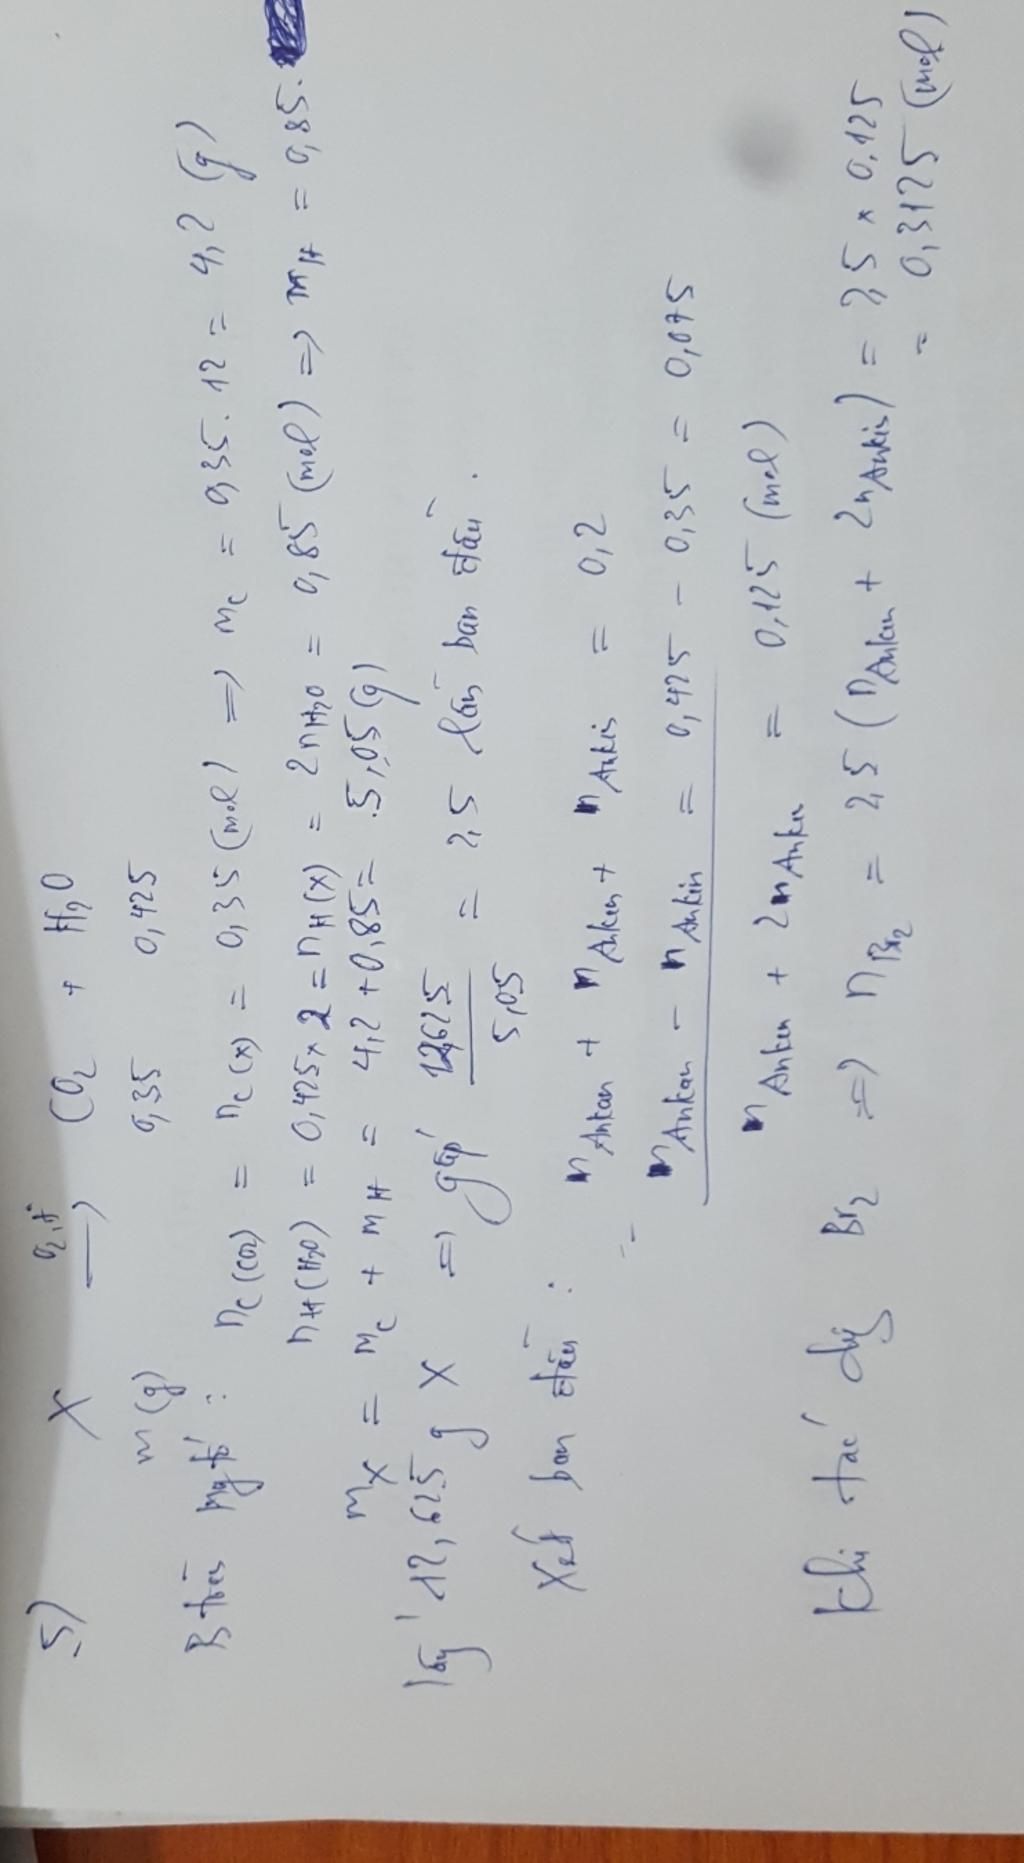 5) X O2,t° → CO2 + H2O
m(g) 0,35 0,425
B toàn ngtố : nC(CO2) = nC(X) = 0,35 (mol) => mC = 0,35.12 = 4,2 (g)
nH(H2O) = 0,425 x 2 = nH(X) = 2nH2O = 0,85 (mol) => mH = 0,85.
mX = mC + mH = 4,2 + 0,85 = 5,05 (g)
lấy 12,625 g X => gấp 12,625 / 5,05 = 2,5 lần ban đầu.
Xét ban đầu :
nAnkan + nAnken + nAnkin = 0,2
nAnkan - nAnkin = 0,425 - 0,35 = 0,075
nAnken + 2nAnkin = 0,125 (mol)
Khi tác dg Br2 => nBr2 = 2,5 (nAnken + 2nAnkin) = 2,5 x 0,125
= 0,3125 (mol)